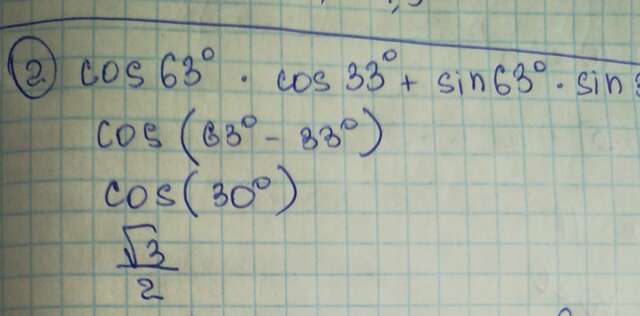 2 cos 63° · cos 33° + sin 63° · sin
cos (63° - 33°)
cos (30°)
√3
2